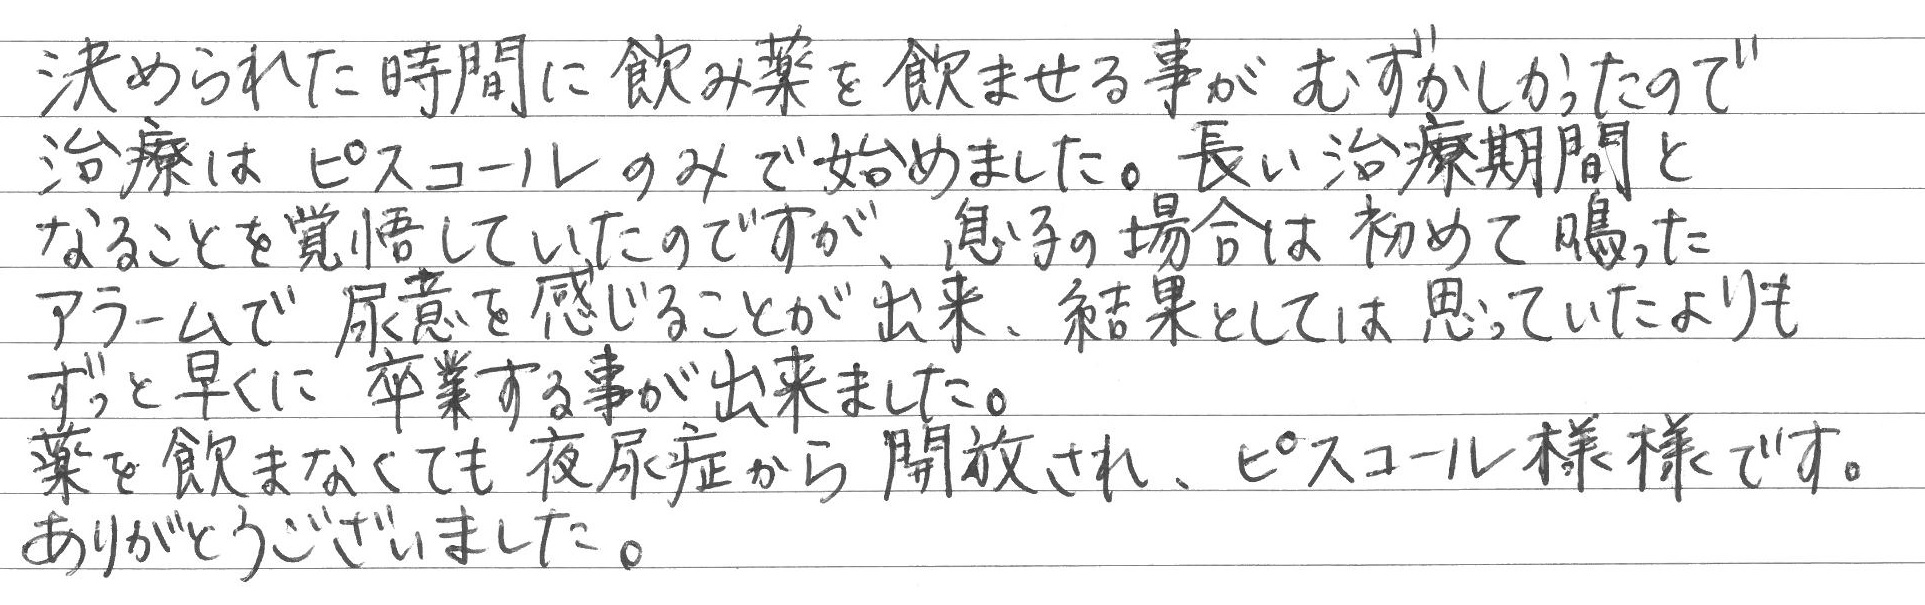 決められた時間に飲み薬を飲ませる事がむずかしかったので
治療はピスコールのみで始めました。長い治療期間と
なることを覚悟していたのですが、息子の場合は初めて鳴った
アラームで尿意を感じることが出来、結果としては思っていたよりも
ずっと早くに卒業する事が出来ました。
薬を飲まなくても夜尿症から開放され、ピスコール様様です。
ありがとうございました。